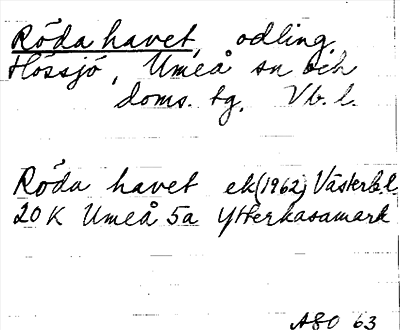 Röda havet, odling,
Hössjö, Umeå sn och
doms. tg, Vb. l.
Röda havet ek (1962) Västerb. l.
20K Umeå 5a Ytterkasamark
ASO 63